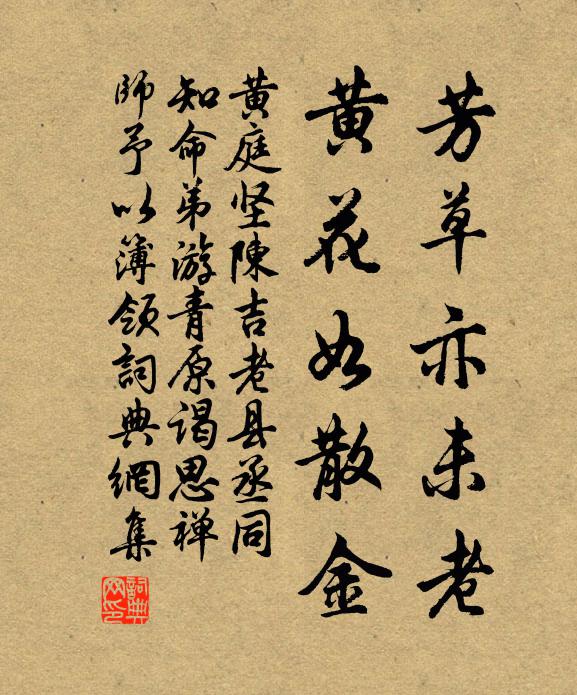 芳草亦未老
黄花如散金
黄庭坚陳吉老县丞同
知命弟游青原谒思禅
師予以簿領詞典網集
詞典网印